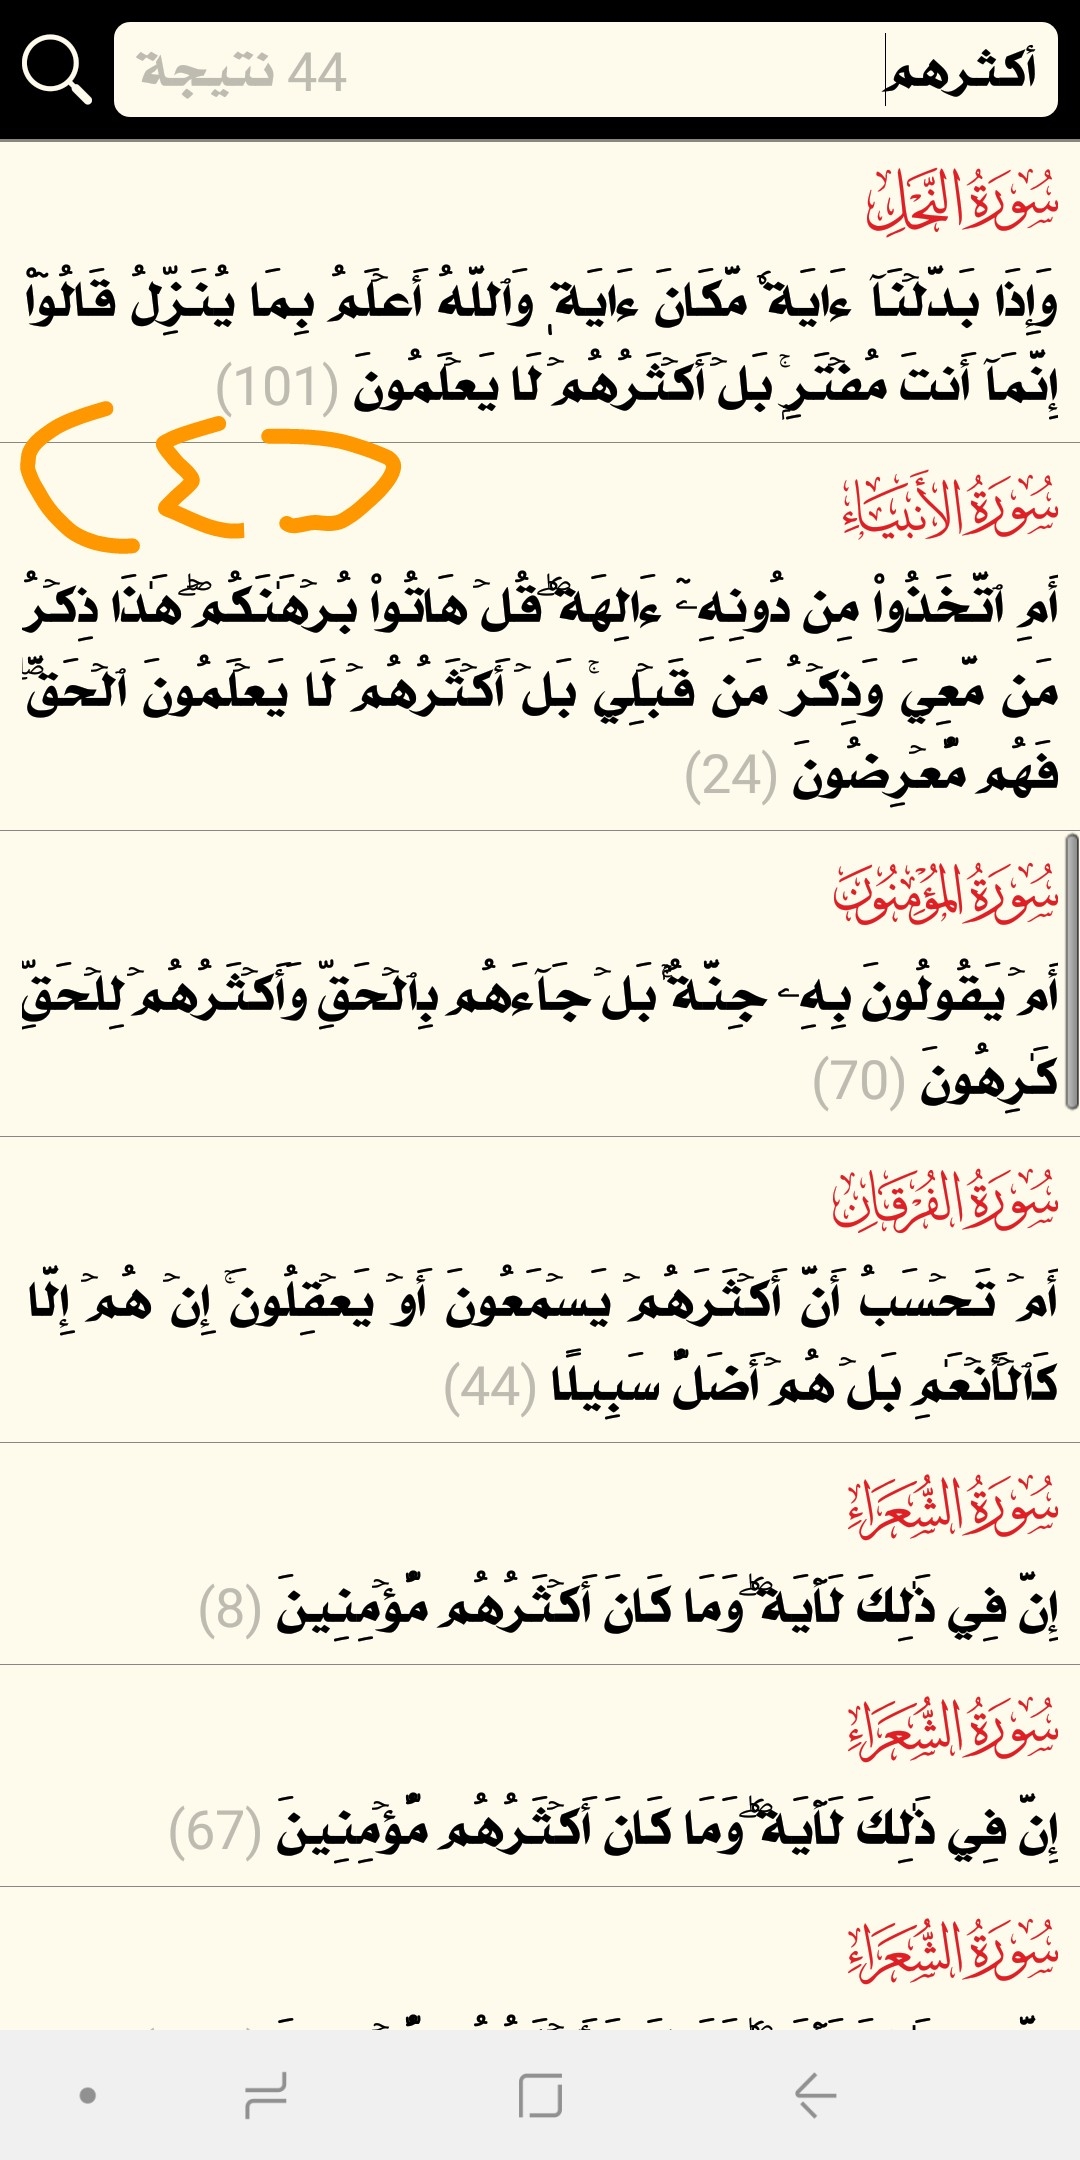 أكثرهم 44 نتيجة
سُورَةُ النَّحْلِ
وَإِذَا بَدَّلۡنَآ ءَايَةٗ مَّكَانَ ءَايَةٖ وَٱللَّهُ أَعۡلَمُ بِمَا يُنَزِّلُ قَالُوٓاْ
إِنَّمَآ أَنتَ مُفۡتَرِۭۚ بَلۡ أَكۡثَرُهُمۡ لَا يَعۡلَمُونَ (101)
(٤)
سُورَةُ الأَنبيَاءِ
أَمِ ٱتَّخَذُواْ مِن دُونِهِۦٓ ءَالِهَةٗۖ قُلۡ هَاتُواْ بُرۡهَٰنَكُمۡۖ هَٰذَا ذِكۡرُ
مَن مَّعِيَ وَذِكۡرُ مَن قَبۡلِيۚ بَلۡ أَكۡثَرُهُمۡ لَا يَعۡلَمُونَ ٱلۡحَقَّۖ
فَهُم مُّعۡرِضُونَ (24)
سُورَةُ المُؤْمِنُونَ
أَمۡ يَقُولُونَ بِهِۦ جِنَّةُۢۚ بَلۡ جَآءَهُم بِٱلۡحَقِّ وَأَكۡثَرُهُمۡ لِلۡحَقِّ
كَٰرِهُونَ (70)
سُورَةُ الفُرْقَانِ
أَمۡ تَحۡسَبُ أَنَّ أَكۡثَرَهُمۡ يَسۡمَعُونَ أَوۡ يَعۡقِلُونَۚ إِنۡ هُمۡ إِلَّا
كَٱلۡأَنۡعَٰمِ بَلۡ هُمۡ أَضَلُّ سَبِيلًا (44)
سُورَةُ الشُّعَرَاءِ
إِنَّ فِي ذَٰلِكَ لَأٓيَةٗۖ وَمَا كَانَ أَكۡثَرُهُم مُّؤۡمِنِينَ (8)
سُورَةُ الشُّعَرَاءِ
إِنَّ فِي ذَٰلِكَ لَأٓيَةٗۖ وَمَا كَانَ أَكۡثَرُهُم مُّؤۡمِنِينَ (67)
سُورَةُ الشُّعَرَاءِ